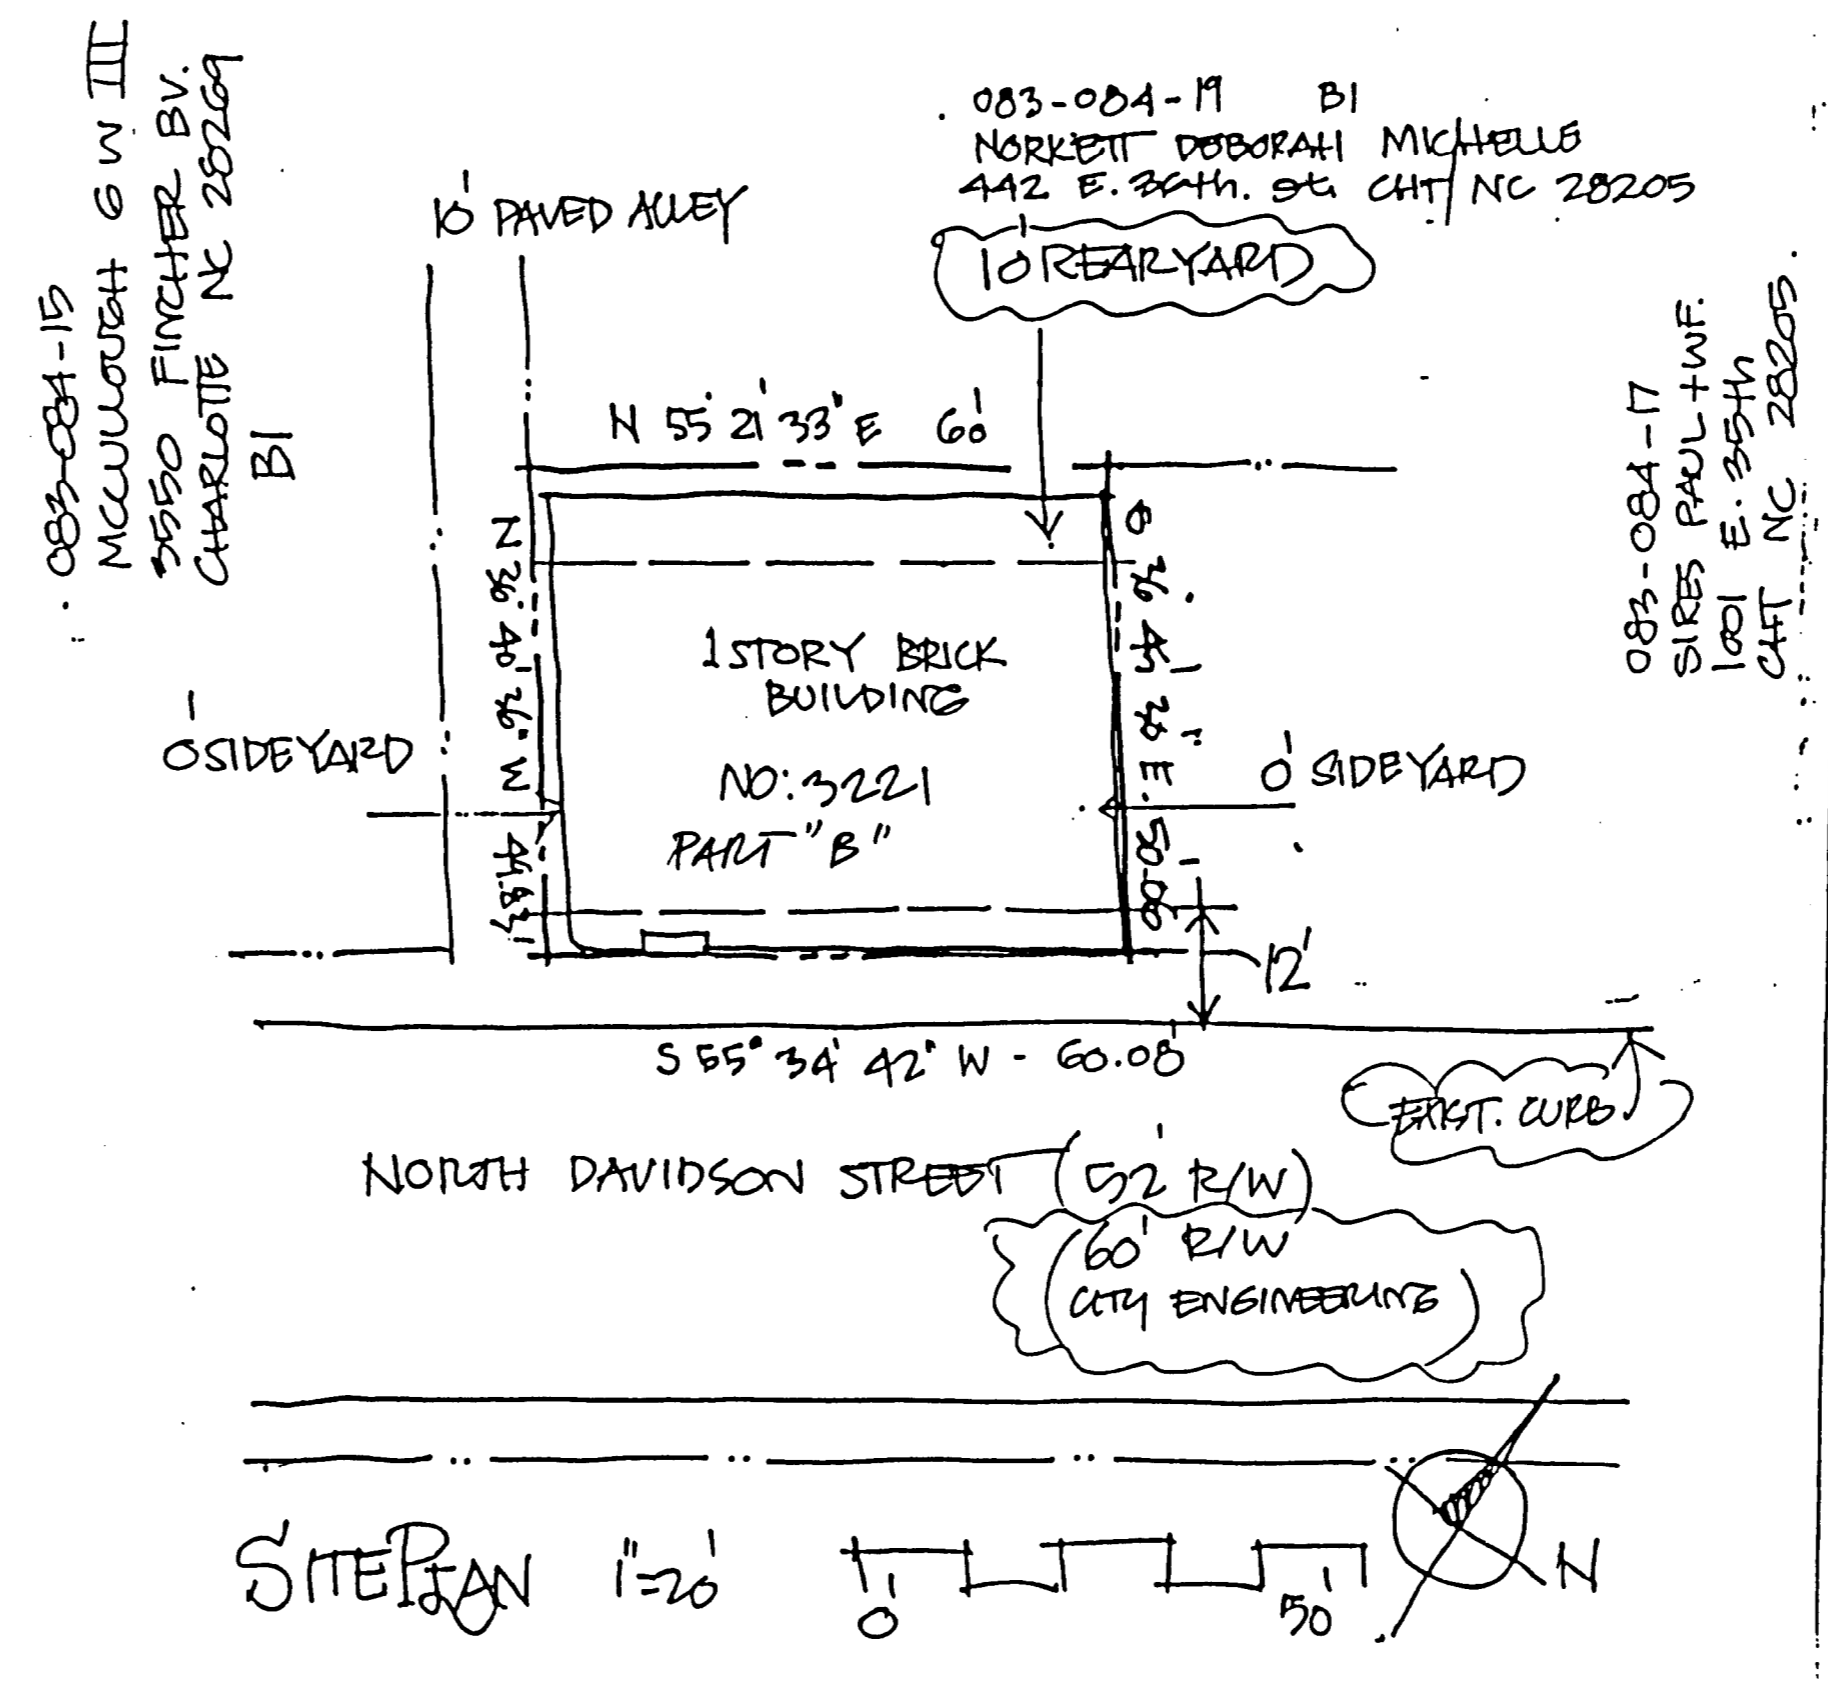 083-084-15
MCCULLOUGH G W III
3550 FINCHER BV.
CHARLOTTE NC 28269
B1
083-084-19 B1
NORKETT DEBORAH MICHELLE
442 E. 36th. st. CHT/ NC 28205
10' PAVED ALLEY
10' REARYARD
083-084-17
SIRES PAUL + WF.
1001 E. 35th
CHT NC 28205
N 55° 21' 33" E 60'
N 36° 40' 36" W 49.87'
36 45' 30" E. 50.00'
1 STORY BRICK
BUILDING
NO: 3221
PART "B"
0' SIDEYARD
0' SIDEYARD
12'
S 55° 34' 42" W - 60.08'
EXIST. CURB
NORTH DAVIDSON STREET (52' R/W)
(60' R/W
CITY ENGINEERING)
SITE PLAN 1"=20'
0' 50'
N